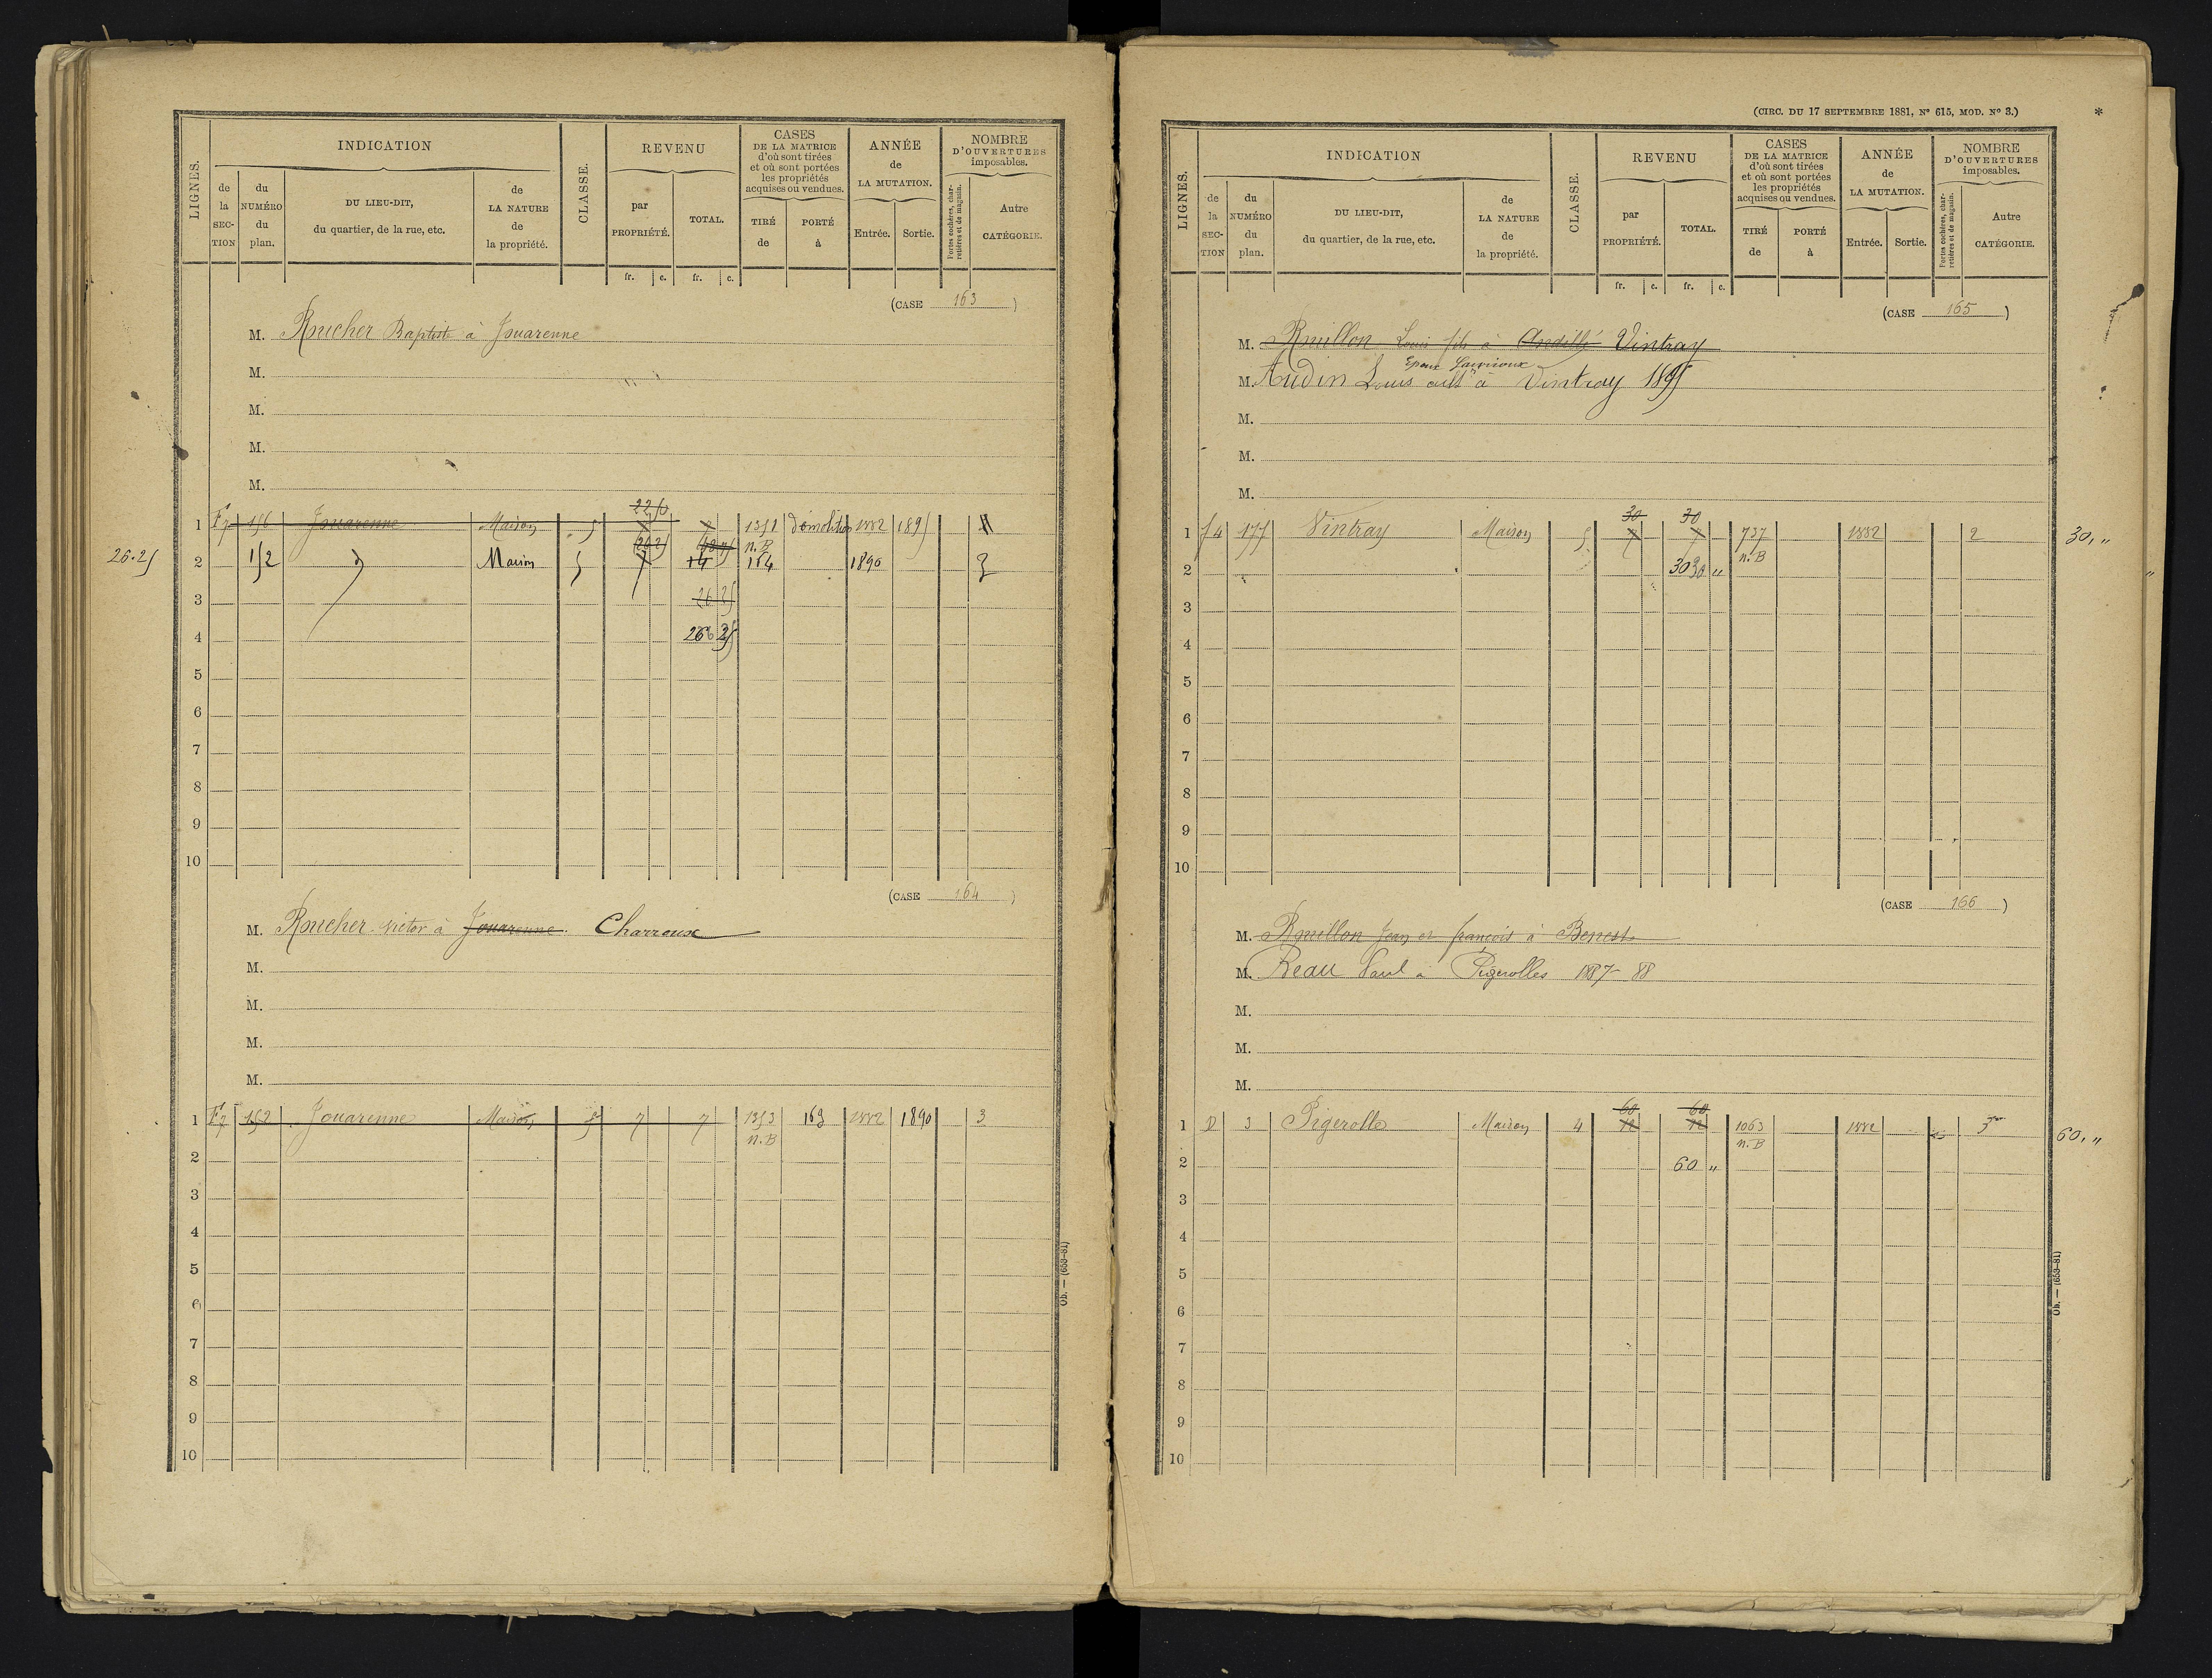 LIGNES.
INDICATION
de la SECTION
du NUMÉRO du plan.
DU LIEU-DIT, du quartier, de la rue, etc.
de LA NATURE de la propriété.
CLASSE.
REVENU
par PROPRIÉTÉ.
TOTAL.
CASES DE LA MATRICE d'où sont tirées et où sont portées les propriétés acquises ou vendues.
TIRÉ de
PORTÉ à
ANNÉE de LA MUTATION.
Entrée. Sortie.
NOMBRE D'OUVERTURES imposables.
Portes cochères, charretières et de magasin.
Autre CATÉGORIE.
fr. c. fr. c.
(CASE 163)
M. Roucher Baptiste à Jouarenne
M.
M.
M.
M.
22 50
1 F7 156 Jouarenne Maison 5 1352 démolition 1882 1895
n.B
26.25 2 152 Maison 5 7 14 164 1890 3
3 26 25
4 26 25
5
6
7
8
9
10
(CASE 164)
M. Roucher victor à Jouarenne. Charroux
M.
M.
M.
M.
1 F7 152 Jouarenne Maison 5 7 7 1353 163 1882 1890 3
n.B
2
3
4
5
6
7
8
9
10
Ob. — (653-81)
(CIRC. DU 17 SEPTEMBRE 1881, N° 615, MOD. N° 3.)
*
LIGNES.
INDICATION
de la SECTION
du NUMÉRO du plan.
DU LIEU-DIT, du quartier, de la rue, etc.
de LA NATURE de la propriété.
CLASSE.
REVENU
par PROPRIÉTÉ.
TOTAL.
CASES DE LA MATRICE d'où sont tirées et où sont portées les propriétés acquises ou vendues.
TIRÉ de
PORTÉ à
ANNÉE de LA MUTATION.
Entrée. Sortie.
NOMBRE D'OUVERTURES imposables.
Portes cochères, charretières et de magasin.
Autre CATÉGORIE.
fr. c. fr. c.
(CASE 165)
M. Rouillon Louis fils à Andillé Vintray
Epoux
M. Audin Louis cult à Vintray 1895
M.
M.
M.
30 30
1 f4 177 Vintray Maison 5 7 7 737 1882 2 30, "
n.B
2 30 "
3
4
5
6
7
8
9
10
(CASE 166)
M. Rouillon Jean et françois à Benest
M. Beau Paul à Pigerolles 1887-88
M.
M.
M.
60 60
1 D 3 Pigerolle Maison 4 12 12 1063 1882 3 60, "
n.B
2 60 "
3
4
5
6
7
8
9
10
Ob. — (653-81)